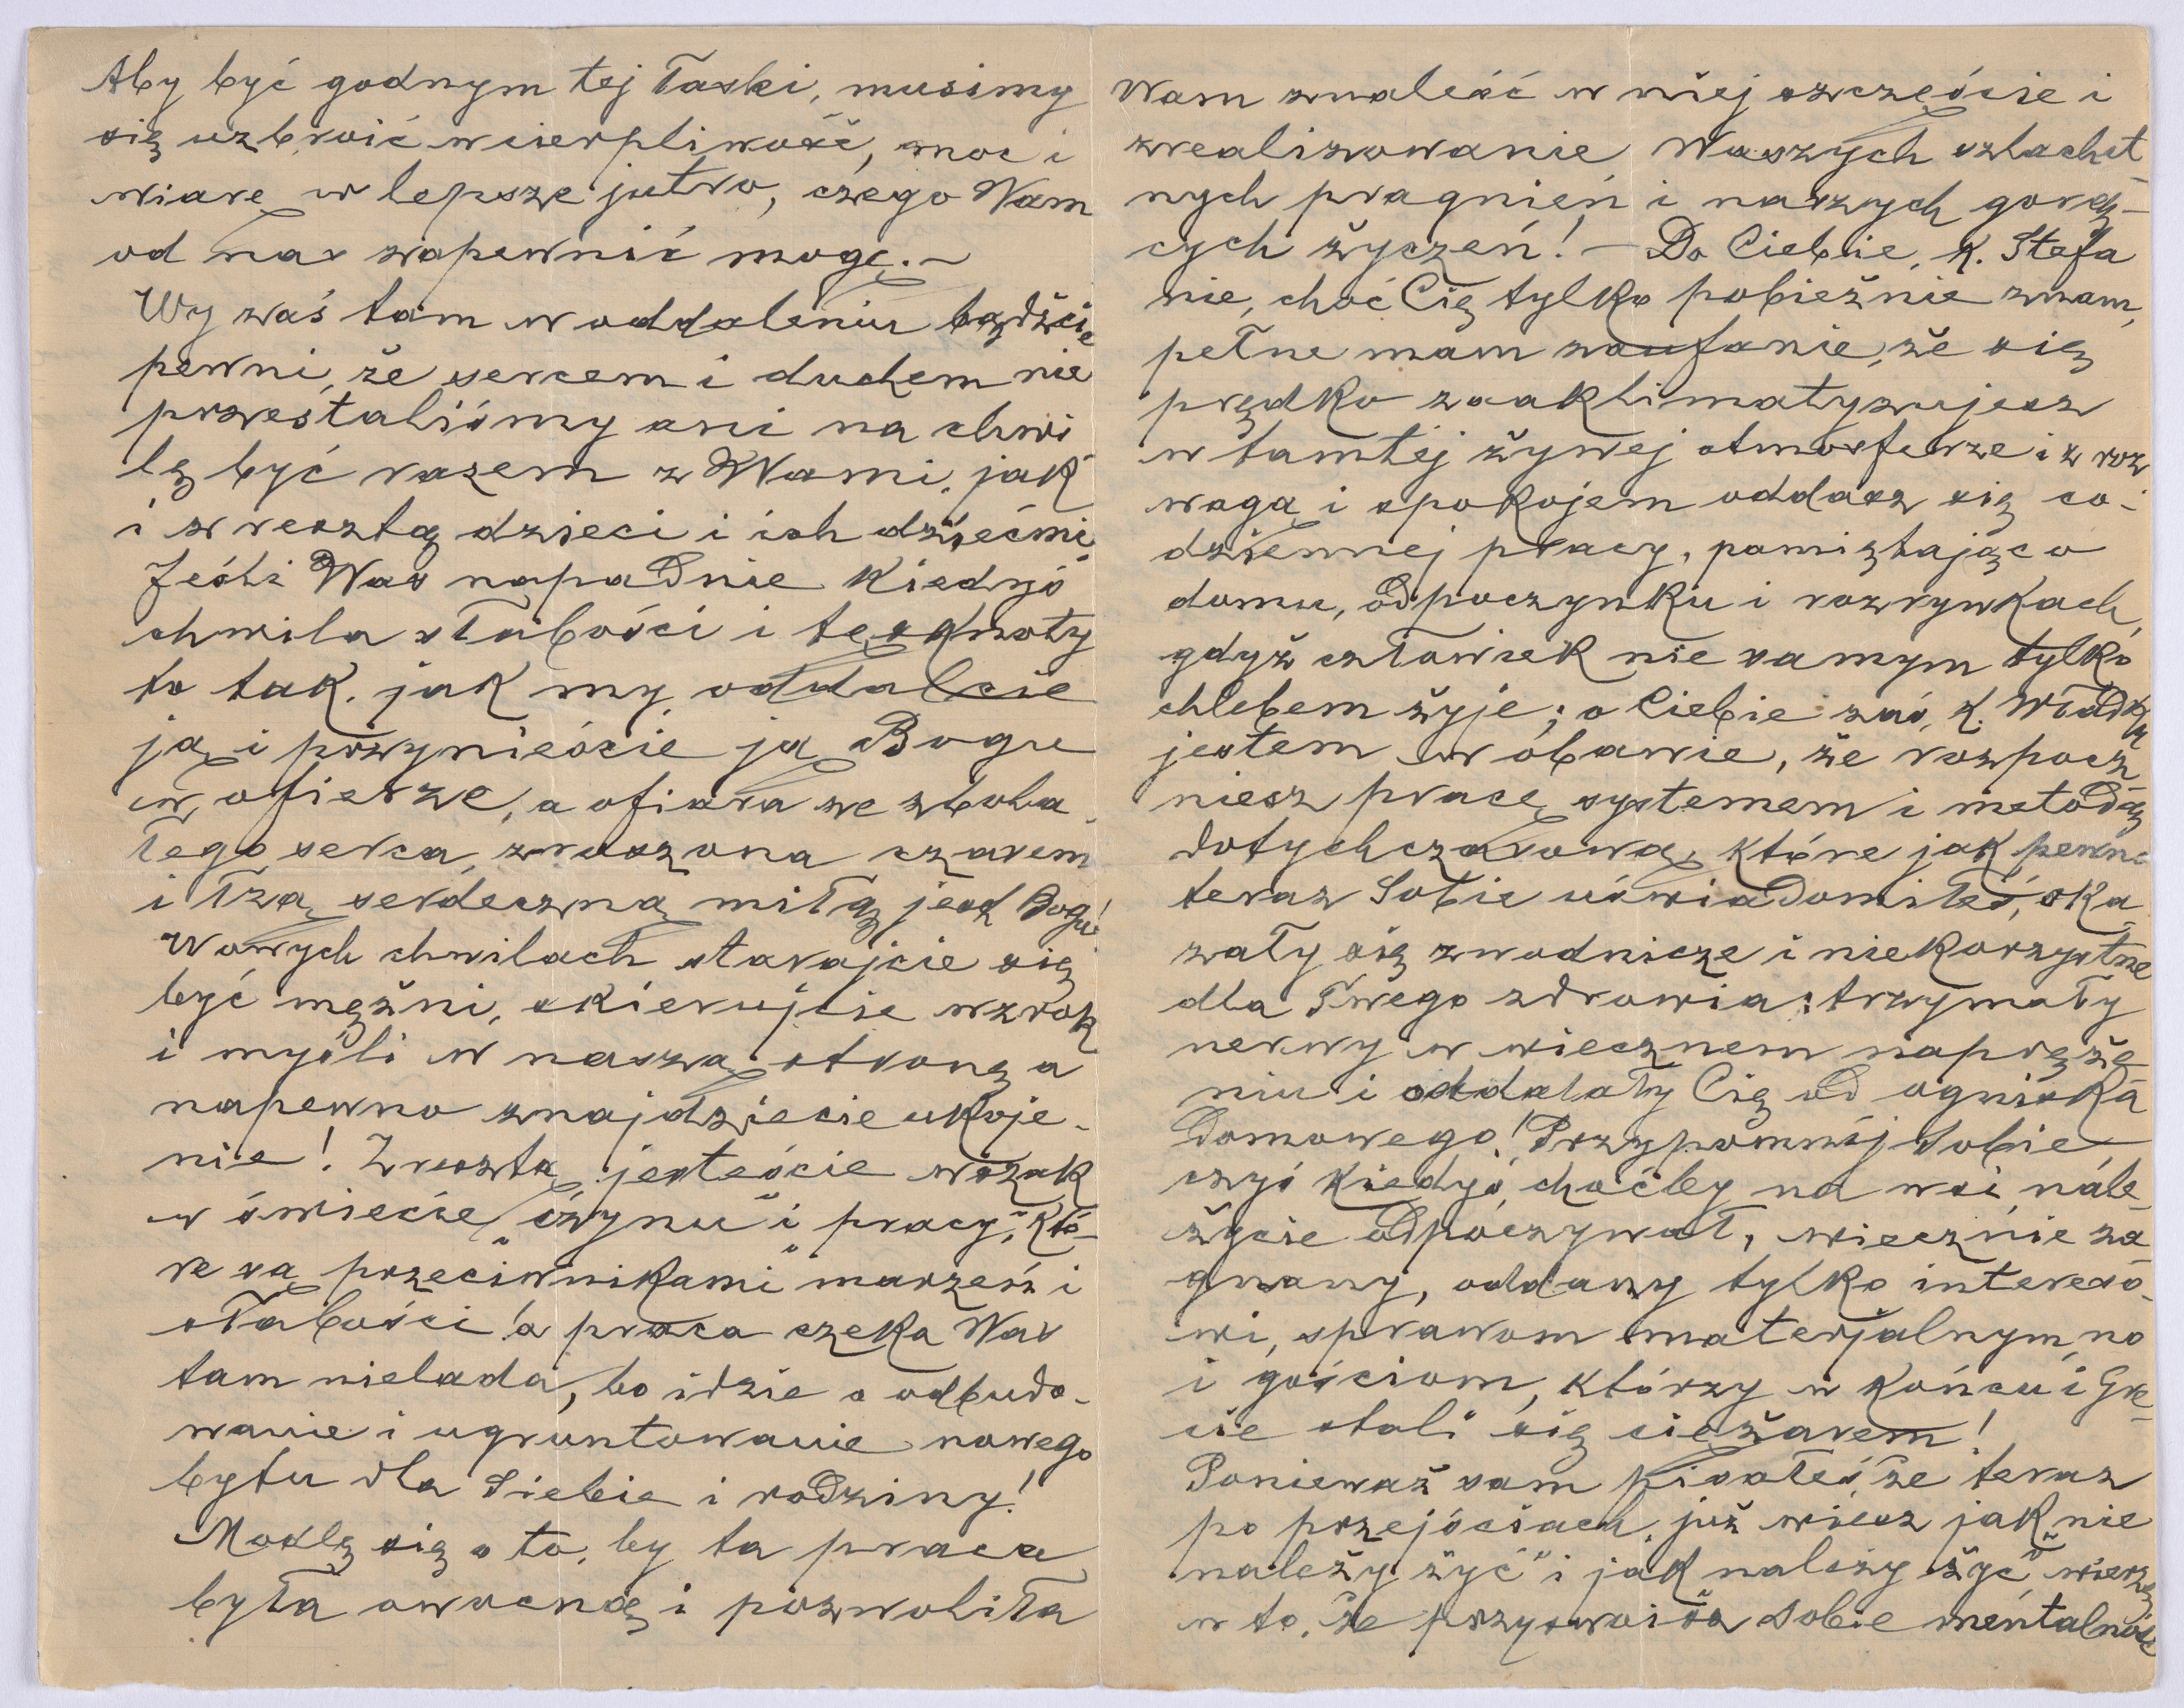 Aby być godnym tej łaski, musimy
się uzbroić w cierpliwość, moc i
wiarę w lepsze jutro, czego Wam
od nas zapewnić mogę. –
Wy zaś tam w oddaleniu bądźcie
pewni, że sercem i duchem nie
przestaliśmy ani na chwi
lę być razem z Wami, jak
i zresztą dzieci i ich dziećmi.
Jeśli Was napadnie kiedyś
chwila słabości i tęsknoty
to tak, jak my, oddalcie
ją i przynieście ją Bogu
w ofierze, a ofiara ze zbola
łego serca, zroszona czarem
i łzą serdeczną miłą jest Bogu!
W owych chwilach starajcie się
być mężni, skierujcie wzrok
i myśli w naszą stronę a
napewno znajdziecie ukoje-
nie! Zresztą jesteście wszak
w świecie „czynu" i pracy", któ-
re są „przeciwnikami" marzeń i
słabości! a praca czeka Was
tam nielada, bo idzie o odbudo-
wanie i ugruntowanie nowego
bytu dla Siebie i rodziny!
Modlę się o to, by ta praca
była owocną i pozwoliła
Wam znaleść w niej szczęście i
zrealizowanie Waszych szlachet
nych pragnień i naszych gorą-
cych życzeń! – Do Ciebie, K. Stefa
nie, choć Cię tylko pobieżnie znam,
pełne mam zaufanie, że się
prędko zaaklimatyzujesz
w tamtej żywej atmosferze i z roz
wagą i spokojem oddasz się co-
dziennej pracy, pamiętając o
domu, odpoczynku i rozrywkach,
gdyż człowiek nie samym tylko
chlebem żyje; o Ciebie zaś, K. Władku
jestem w obawie, że rozpocz
niesz pracę systemem i metodą
dotychczasową, które jak pewno
teraz Sobie uświadomiłeś, oka
zały się zwodnicze i niekorzystne
dla Twego zdrowia: trzymały
nerwy w wiecznem napręże
niu i oddalały Cię od ogniska
Domowego! Przypomnij Sobie,
czyś kiedyś, choćby na wsi, nale
życie odpoczywał, wiecznie za
gnany, oddany tylko intereso-
wi, sprawom materjalnym, no
i gościom, którzy w końcu i Gre-
cie stali się ciężarem!
Ponieważ sam pisałeś, że teraz
po przejściach, już wiesz jak „nie
należy żyć" i jak należy „żyć" wierzę
w to, że przyswoisz Sobie mentalność